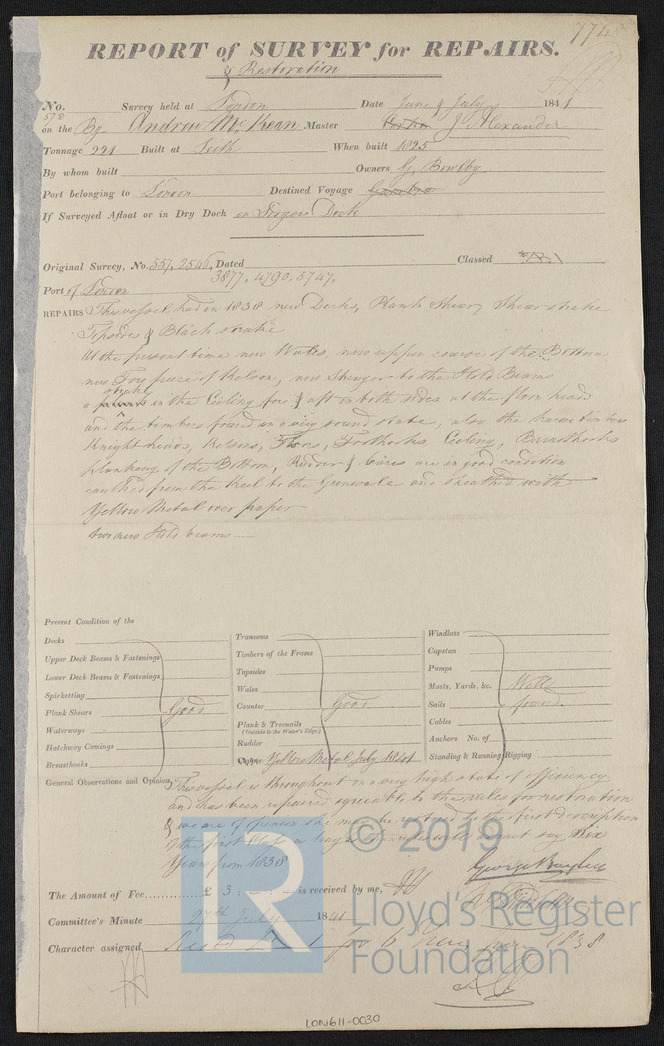 774
REPORT of SURVEY for REPAIRS.
& Restoration
No. Survey held at London Date June & July 1841
578
on the Bg Andrew McKean Master J Alexander
Tonnage 221 Built at Leith When built 1825
By whom built Owners G. Bowlby
Port belonging to London Destined Voyage
If Surveyed Afloat or in Dry Dock in Dock
Original Survey, No. 557, 2546, Dated Classed
3877, 4790, 5747,
Port of London
REPAIRS This vessel had in 1838 new Decks, Plank Shear, Shearstrake
Topsides & Black strake
At the present time new Wales, new upper course of the Bottom
new Fore piece of Kelson, new Stringer to the Hold Beams
a strake in the Ceiling fore & aft on both sides at the floor heads
and the timbers found in a very sound state, also the hawse timbers
Knightheads, Kelsons, Floors, Futtocks, Ceiling, Breasthooks
planking of the Bottom, Rudder & are in good condition
caulked from the Keel to the Gunwale and sheathed with
Yellow Metal over paper
two new Hold beams
Present Condition of the
Decks
Upper Deck Beams & Fastenings
Lower Deck Beams & Fastenings
Spirketting
Plank Shears Good
Waterways
Hatchway Comings
Breasthooks
Transoms
Timbers of the Frame
Topsides
Wales
Counter Good
Plank & Treenails
(Outside to the Water's Edge)
Rudder
Copper Yellow Metal July 1841
Windlass
Capstan
Pumps
Masts, Yards, &c. Well
Sails found
Cables
Anchors No. of
Standing & Running Rigging
General Observations and Opinion, This vessel is throughout in a very high state of efficiency
and has been repaired agreeable to the rules for restoration
& we are of opinion she may be restored to the first description
of the first Class as long as the rules will permit say Six
Years from 1838
The Amount of Fee £ 3 : - : - is received by me,
Committee's Minute 27th July 1841
Character assigned Rest'd A 1 for 6 Years from 1838
© 2019
Lloyd's Register
Foundation
LR
LON611-0030